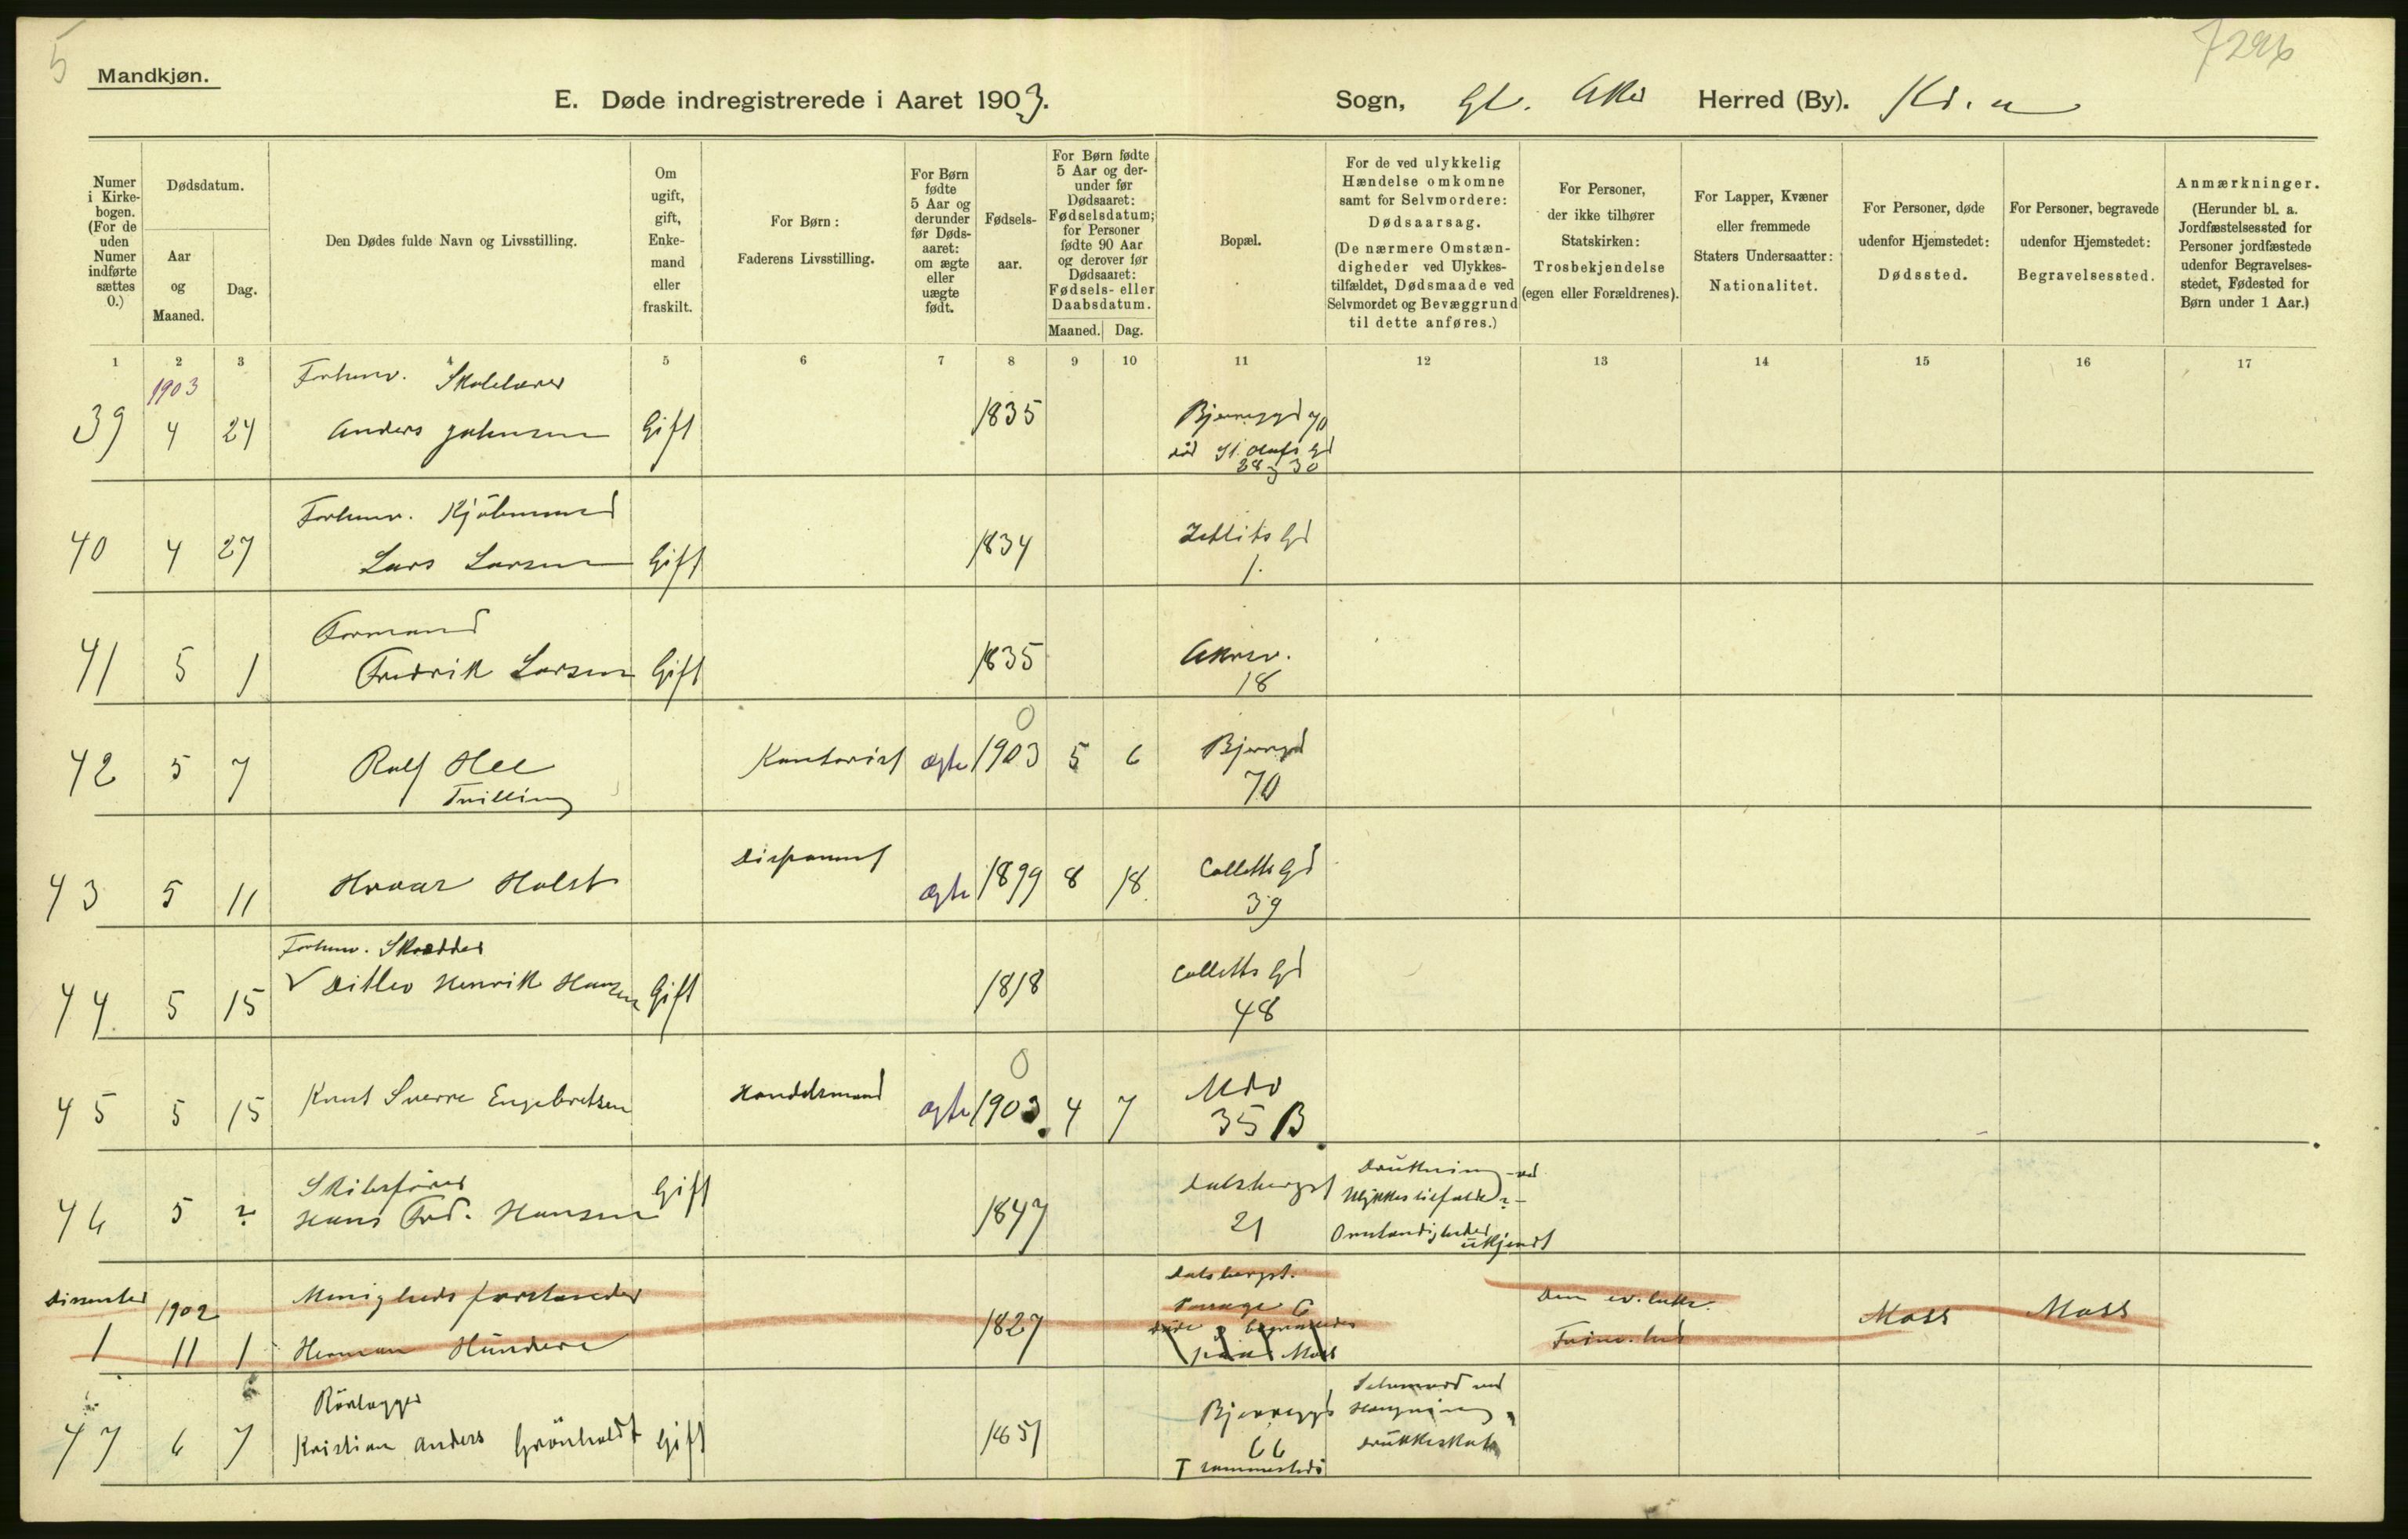 5
7296
Mandkjøn.
E. Døde indregistrerede i Aaret 1903.
Sogn, Gl. Aker Herred (By). Kr.a
Numer i Kirkebogen. (For de uden Numer indførte sættes 0.)
Dødsdatum.
Aar og Maaned.
Dag.
Den Dødes fulde Navn og Livsstilling.
Om ugift, gift, Enkemand eller fraskilt.
For Børn: Faderens Livsstilling.
For Børn fødte 5 Aar og derunder før Dødsaaret: om ægte eller uægte født.
Fødselsaar.
For Børn fødte 5 Aar og derunder før Dødsaaret: Fødselsdatum; for Personer fødte 90 Aar og derover før Dødsaaret: Fødsels- eller Daabsdatum.
Maaned. Dag.
Bopæl.
For de ved ulykkelig Hændelse omkomne samt for Selvmordere: Dødsaarsag. (De nærmere Omstændigheder ved Ulykkestilfældet, Dødsmaade ved Selvmordet og Bevæggrund til dette anføres.)
For Personer, der ikke tilhører Statskirken: Trosbekjendelse (egen eller Forældrenes).
For Lapper, Kvæner eller fremmede Staters Undersaatter: Nationalitet.
For Personer, døde udenfor Hjemstedet: Dødssted.
For Personer, begravede udenfor Hjemstedet: Begravelsessted.
Anmærkninger. (Herunder bl. a. Jordfæstelsessted for Personer jordfæstede udenfor Begravelsesstedet, Fødested for Børn under 1 Aar.)
1 2 3 4 5 6 7 8 9 10 11 12 13 14 15 16 17
1903
Forhenv. Skolelærer
39 4 24 Anders Johnsen Gift 1835 Bjerregd 70
død St. Olafs Gd
28 & 30
Forhenv. Kjøbmand
40 4 27 Lars Larsen Gift 1834 Zetlits Gd
1.
Formand
41 5 1 Fredrik Larsen Gift 1835 Akersv.
18
0
42 5 7 Rolf Hee Kontorist ægte 1903 5 6 Bjerregd
Tvilling 70
Disponent
43 5 11 Hroar Holst ægte 1899 8 18 Colletts Gd
39
Forhenv. Skrædder
44 5 15 Ditlev Henrik Hansen Gift 1818 Colletts Gd
48
0
45 5 15 Knut Sverre Engebretsen Handelsmand ægte 1903 4 7 Udv
35 B
Skibsfører
46 5 ? Hans Fred. Hansen Gift 1847 Dalsbergst
21
Drukning ved
Ulykkestilfælde?
Omstændigheder
ukjendt
Dissenter 1902 Menighedsforstander Dalsbergst.
Passage 6
1 11 1 Herman Hündere 1827 døde & begravedes
paa Moss
Den ev. luth.
Frim. 
Moss Moss
Rørlægger
47 6 7 Kristian Anders Grönholdt Gift 1851 Bjerregd
66
T sammesteds
Selvmord ved
Hængning,
drukkeskab